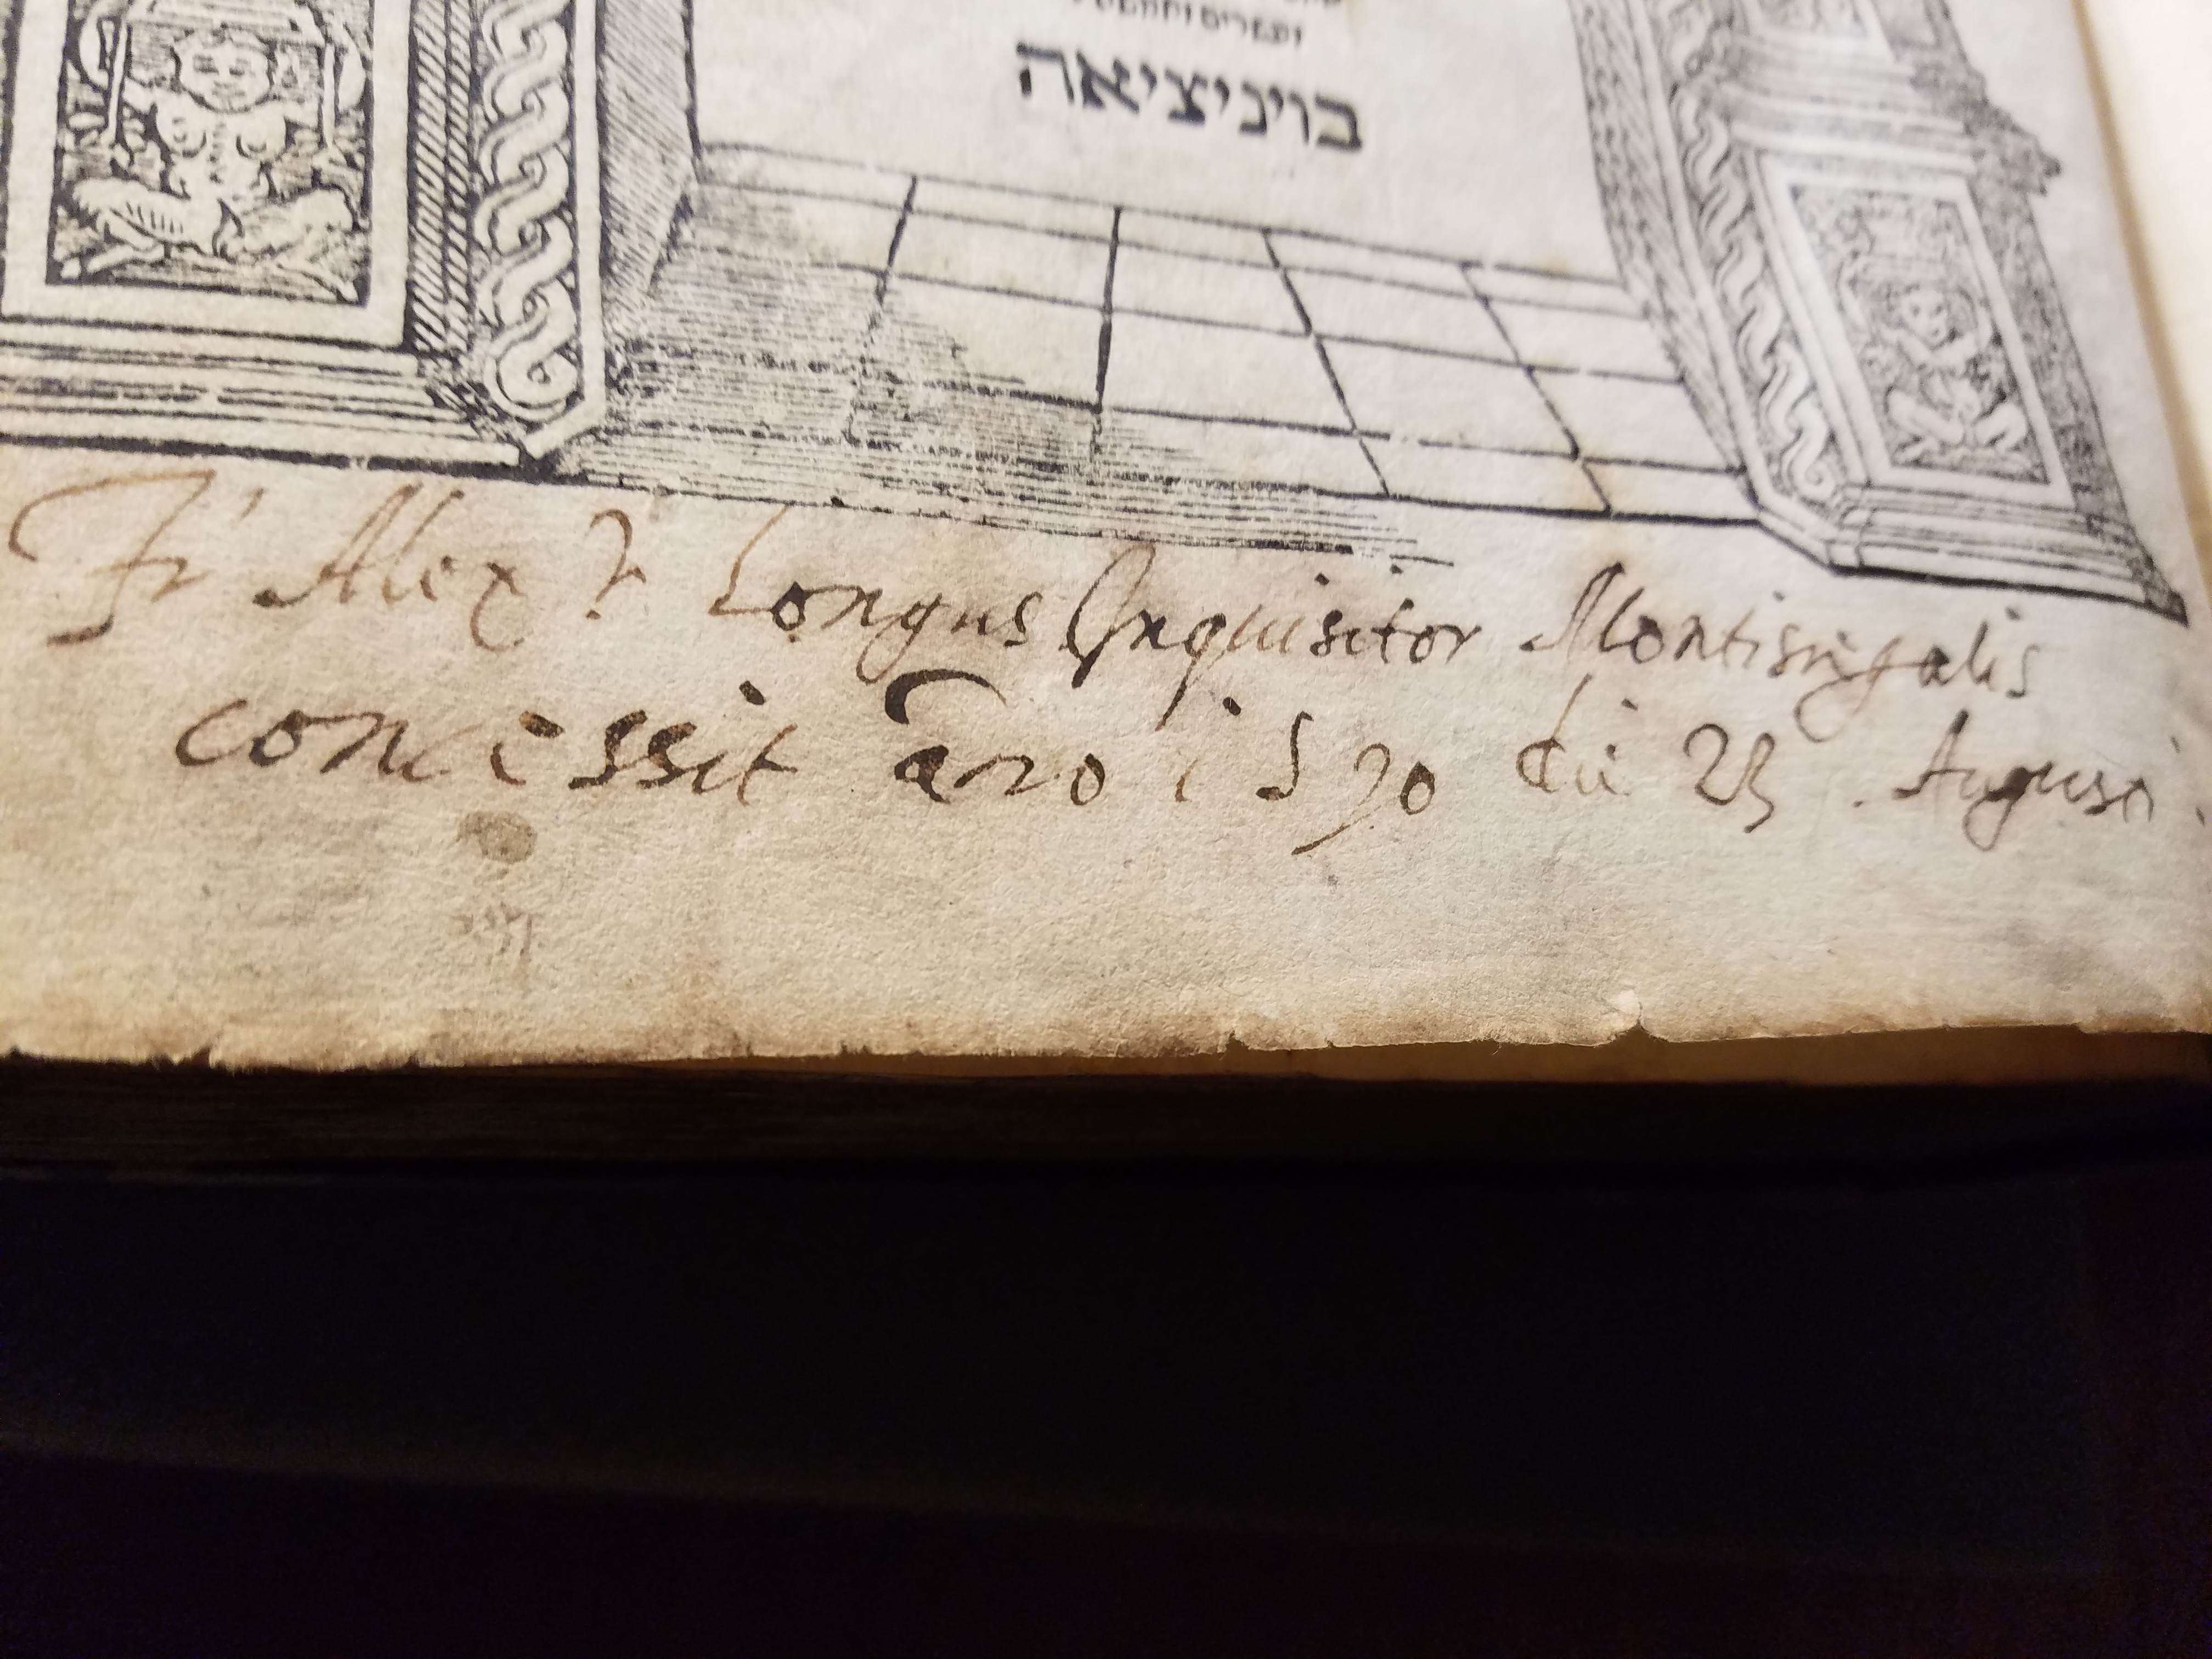 בויניציאה
Fr Alexr Longus Inquisitor Montisregalis
concessit āno i590 die 23. Augusti.